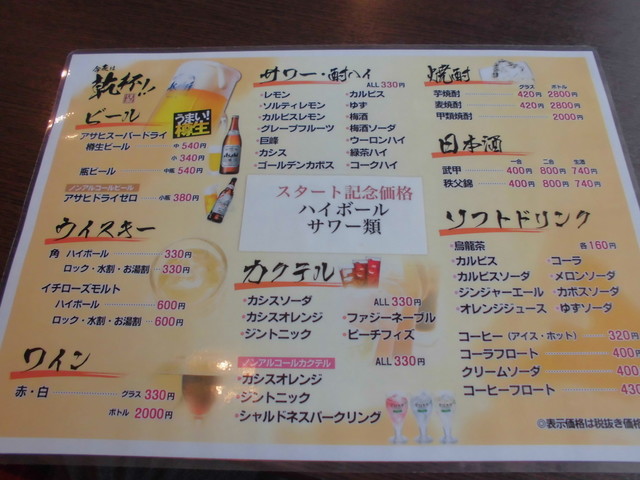 乾杯!!
ビール
うまい!
樽生
アサヒスーパードライ
樽生ビール 中 540円
小 340円
瓶ビール 中瓶 540円
ノンアルコールビール
アサヒドライゼロ 小瓶 380円
ウイスキー
角 ハイボール 330円
ロック・水割・お湯割 330円
イチローズモルト
ハイボール 600円
ロック・水割・お湯割 600円
ワイン
赤・白 グラス 330円
ボトル 2000円
サワー・酎ハイ ALL 330円
・レモン ・カルピス
・ソルティレモン ・ゆず
・カルピスレモン ・梅酒
・グレープフルーツ ・梅酒ソーダ
・巨峰 ・ウーロンハイ
・カシス ・緑茶ハイ
・ゴールデンカボス ・コークハイ
スタート記念価格
ハイボール
サワー類
カクテル
・カシスソーダ ALL 330円
・カシスオレンジ ・ファジーネーブル
・ジントニック ・ピーチフィズ
ノンアルコールカクテル ALL 330円
・カシスオレンジ
・ジントニック
・シャルドネスパークリング
焼酎 グラス ボトル
芋焼酎 420円 2800円
麦焼酎 420円 2800円
甲類焼酎 2000円
日本酒
一合 二合 生酒
武甲 400円 800円 740円
秩父錦 400円 800円 740円
ソフトドリンク
・烏龍茶 各160円
・カルピス ・コーラ
・カルピスソーダ ・メロンソーダ
・ジンジャーエール ・カボスソーダ
・オレンジジュース ・ゆずソーダ
コーヒー (アイス・ホット) 320円
コーラフロート 400円
クリームソーダ 400
コーヒーフロート 430
◎表示価格は税抜き価格